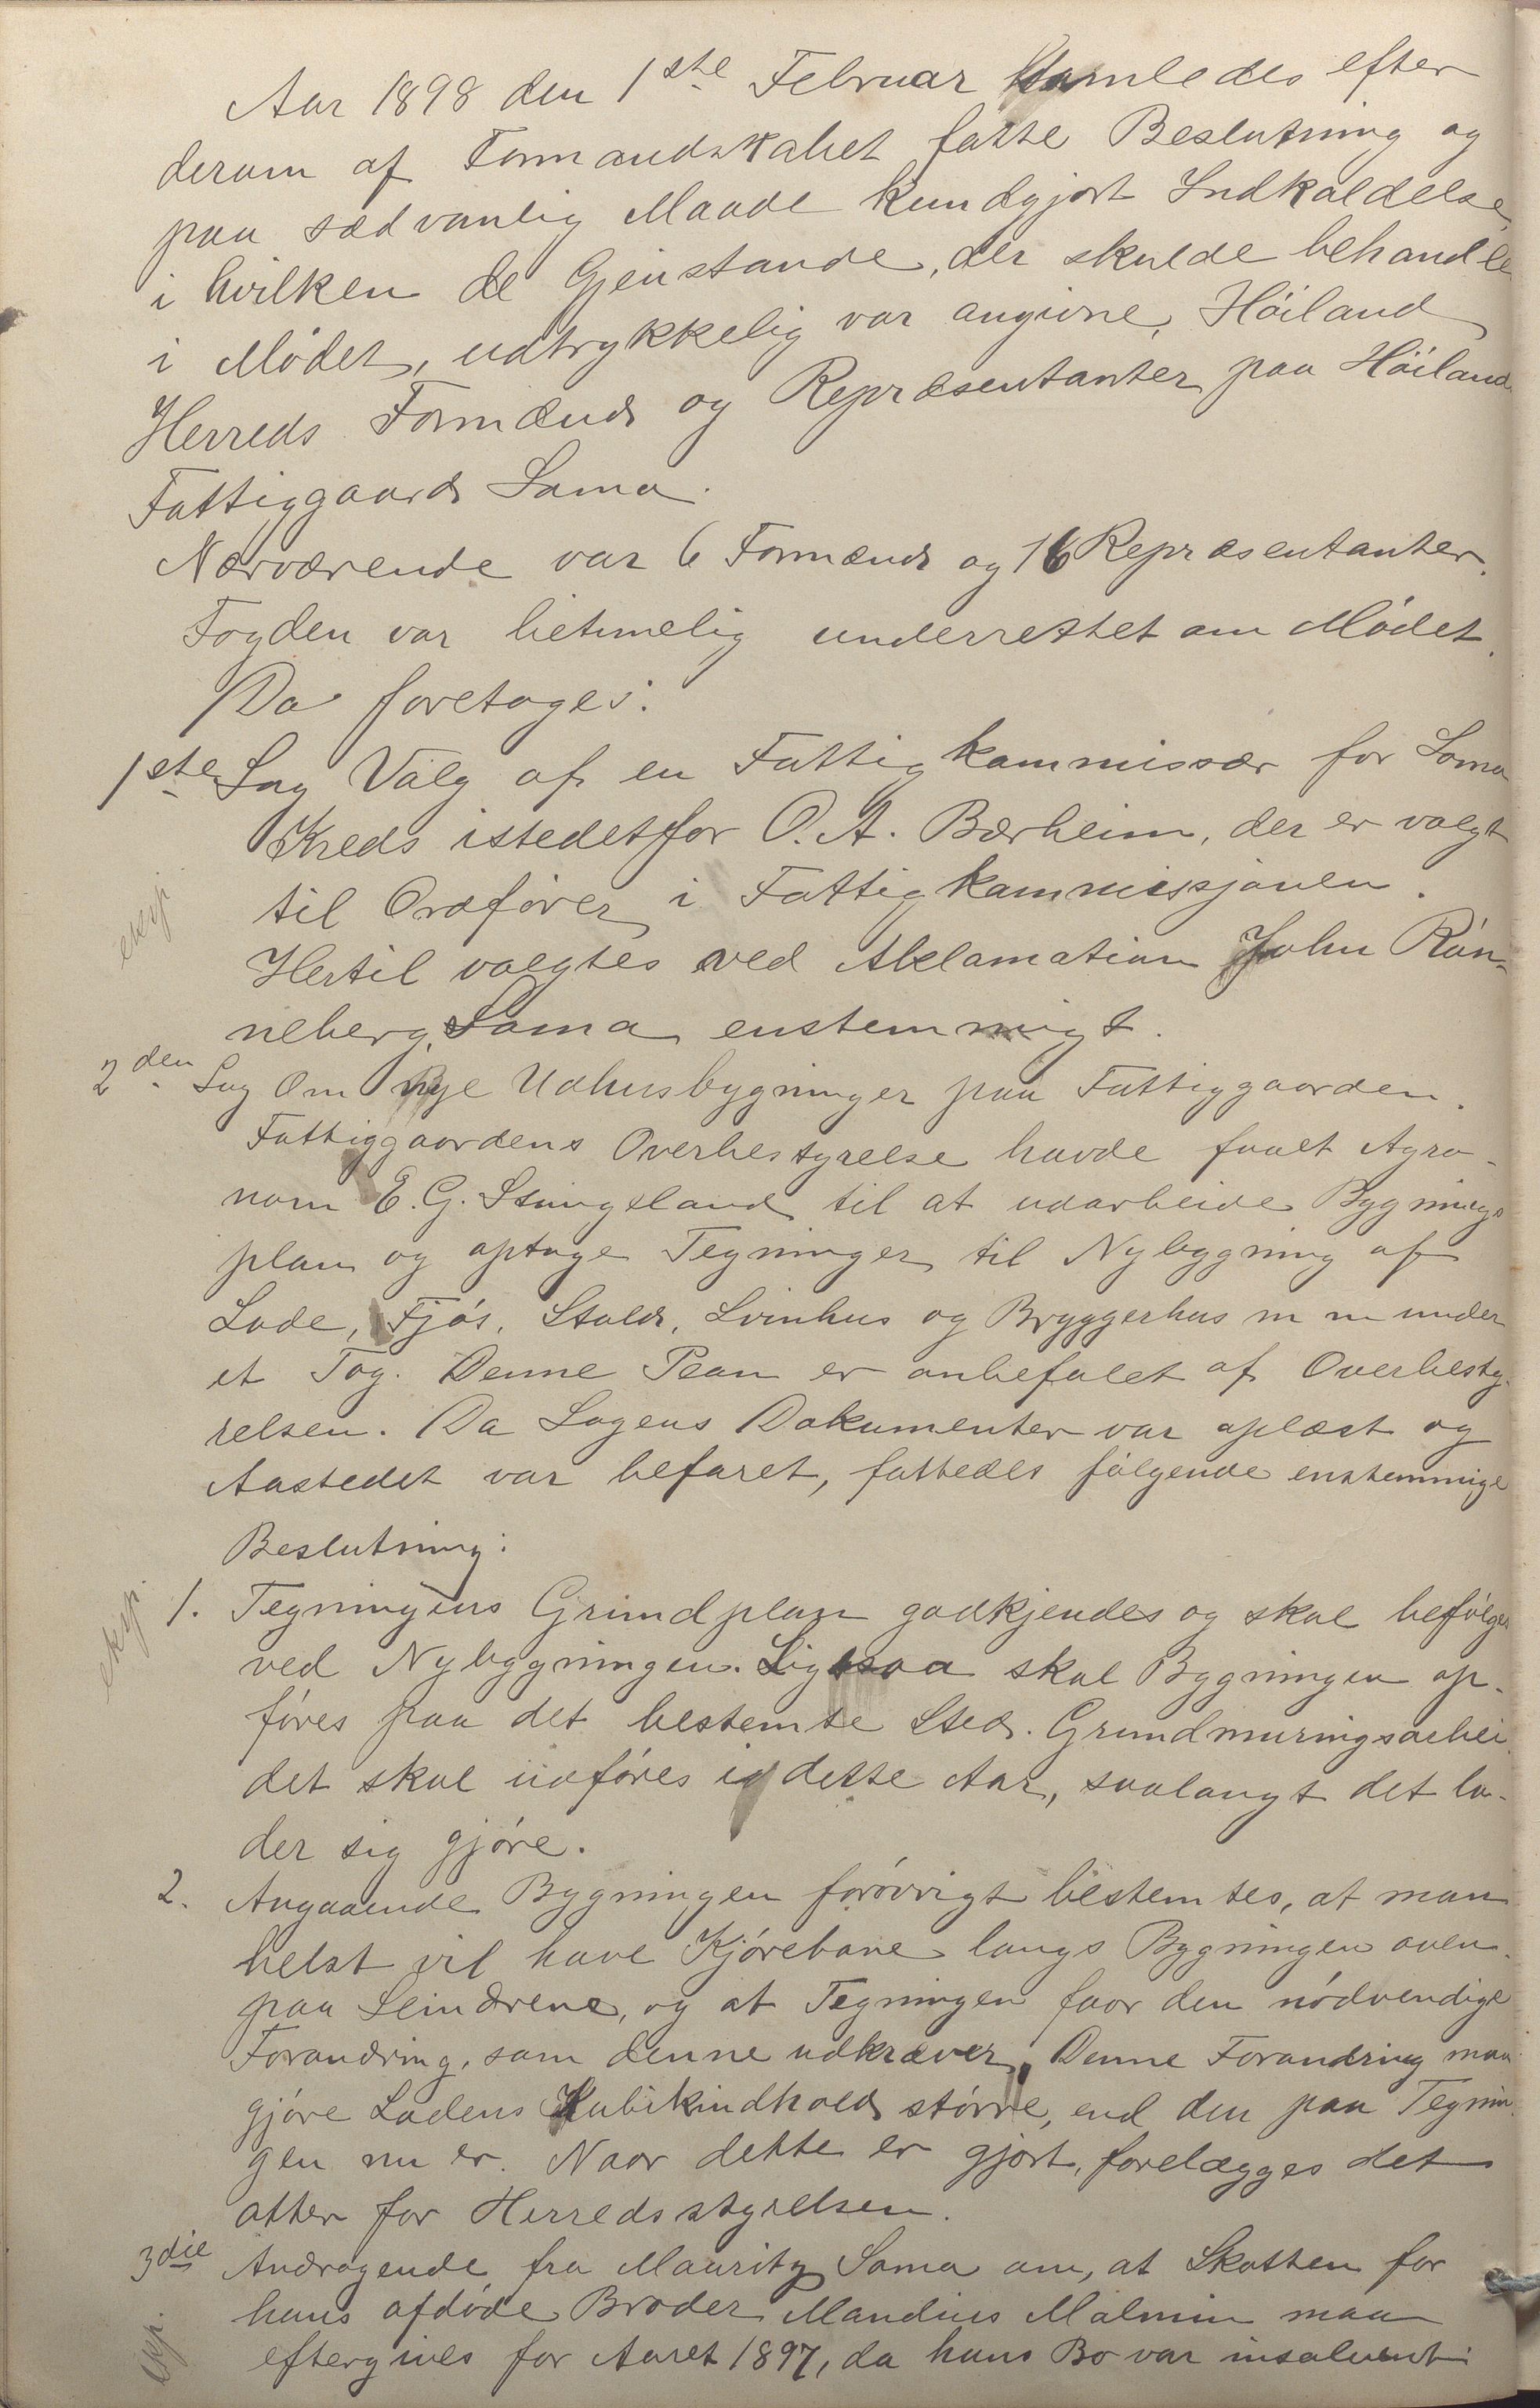 Aar 1898 den 1ste Februar samledes efter
derom af Formandskabet fatte Beslutning og
paa sædvanlig Maade kundgjort Indkaldelse,
i hvilken de Gjenstande, der skulde behandles
i Mødet, udtrykkelig var angivne, Høiland
Herreds Formænd og Repræsentanter paa Høilands
Fattiggaard Soma.
Nærværende var 6 Formænd og 16 Repræsentanter.
Fogden var betimelig underrettet om Mødet.
Da foretoges:
1ste Sag Valg af en Fattigkommissær for Soma
Kreds istedetfor O. A. Bærheim, der er valgt
til Ordfører i Fattigkommissjonen.
eksp.
Hertil valgtes ved Aklamation John Røn-
neberg, Soma enstemmigt.
2den Sag Om nye Udhusbygninger paa Fattiggaarden.
Fattiggaardens Overbestyrelse havde faaet Agro-
nom E. G. Stangeland til at udarbeide Bygnings
plan og optage Tegninger til Nybygning af
Lade, Fjøs, Stald, Svinhus og Bryggerhus m m under
et Tag. Denne Plan er anbefalet af Overbesty-
relsen. Da Sagens Dokumenter var oplæst og
Aastedet var befaret, fattedes følgende enstemmige
Beslutning:
1. Tegningens Grundplan godkjendes og skal befølges
eksp.
ved Nybygningen. Ligesaa skal Bygningen op-
føres paa det bestemte Sted. Grundmuringsarbei-
det skal udføres i dette Aar, saalangt det la-
der sig gjøre.
2. Angaaende Bygningen forøvrigt bestemtes, at man
helst vil have Kjørebane langs Bygningen oven-
paa Leindrene, og at Tegningen faar den nødvendige
Forandring, som denne udkræver. Denne Forandring maa
gjøre Ladens Kubikindhold større, end den paa Tegnin-
gen nu er. Naar dette er gjort, forelægges det
atter for Herredsstyrelsen.
3die Andragende fra Mauritz Soma om, at Skatten for
hans afdøde Broder Mandius Malmin maa
eksp.
eftergives for Aaret 1897, da hans Bo var insolvent: